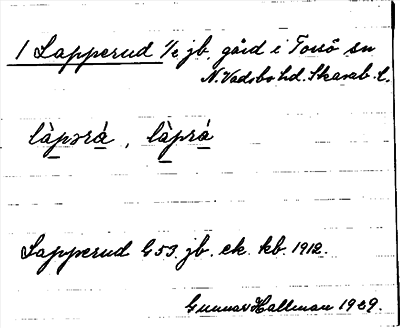 1 Lapperud 1/2 jb. gård i Torsö sn
N. Vadsbo hd. Skarab. l.
làpərá, làprá
Lapperud G 53. jb. ek. kb. 1912.
Gunnar Hallman 1929.